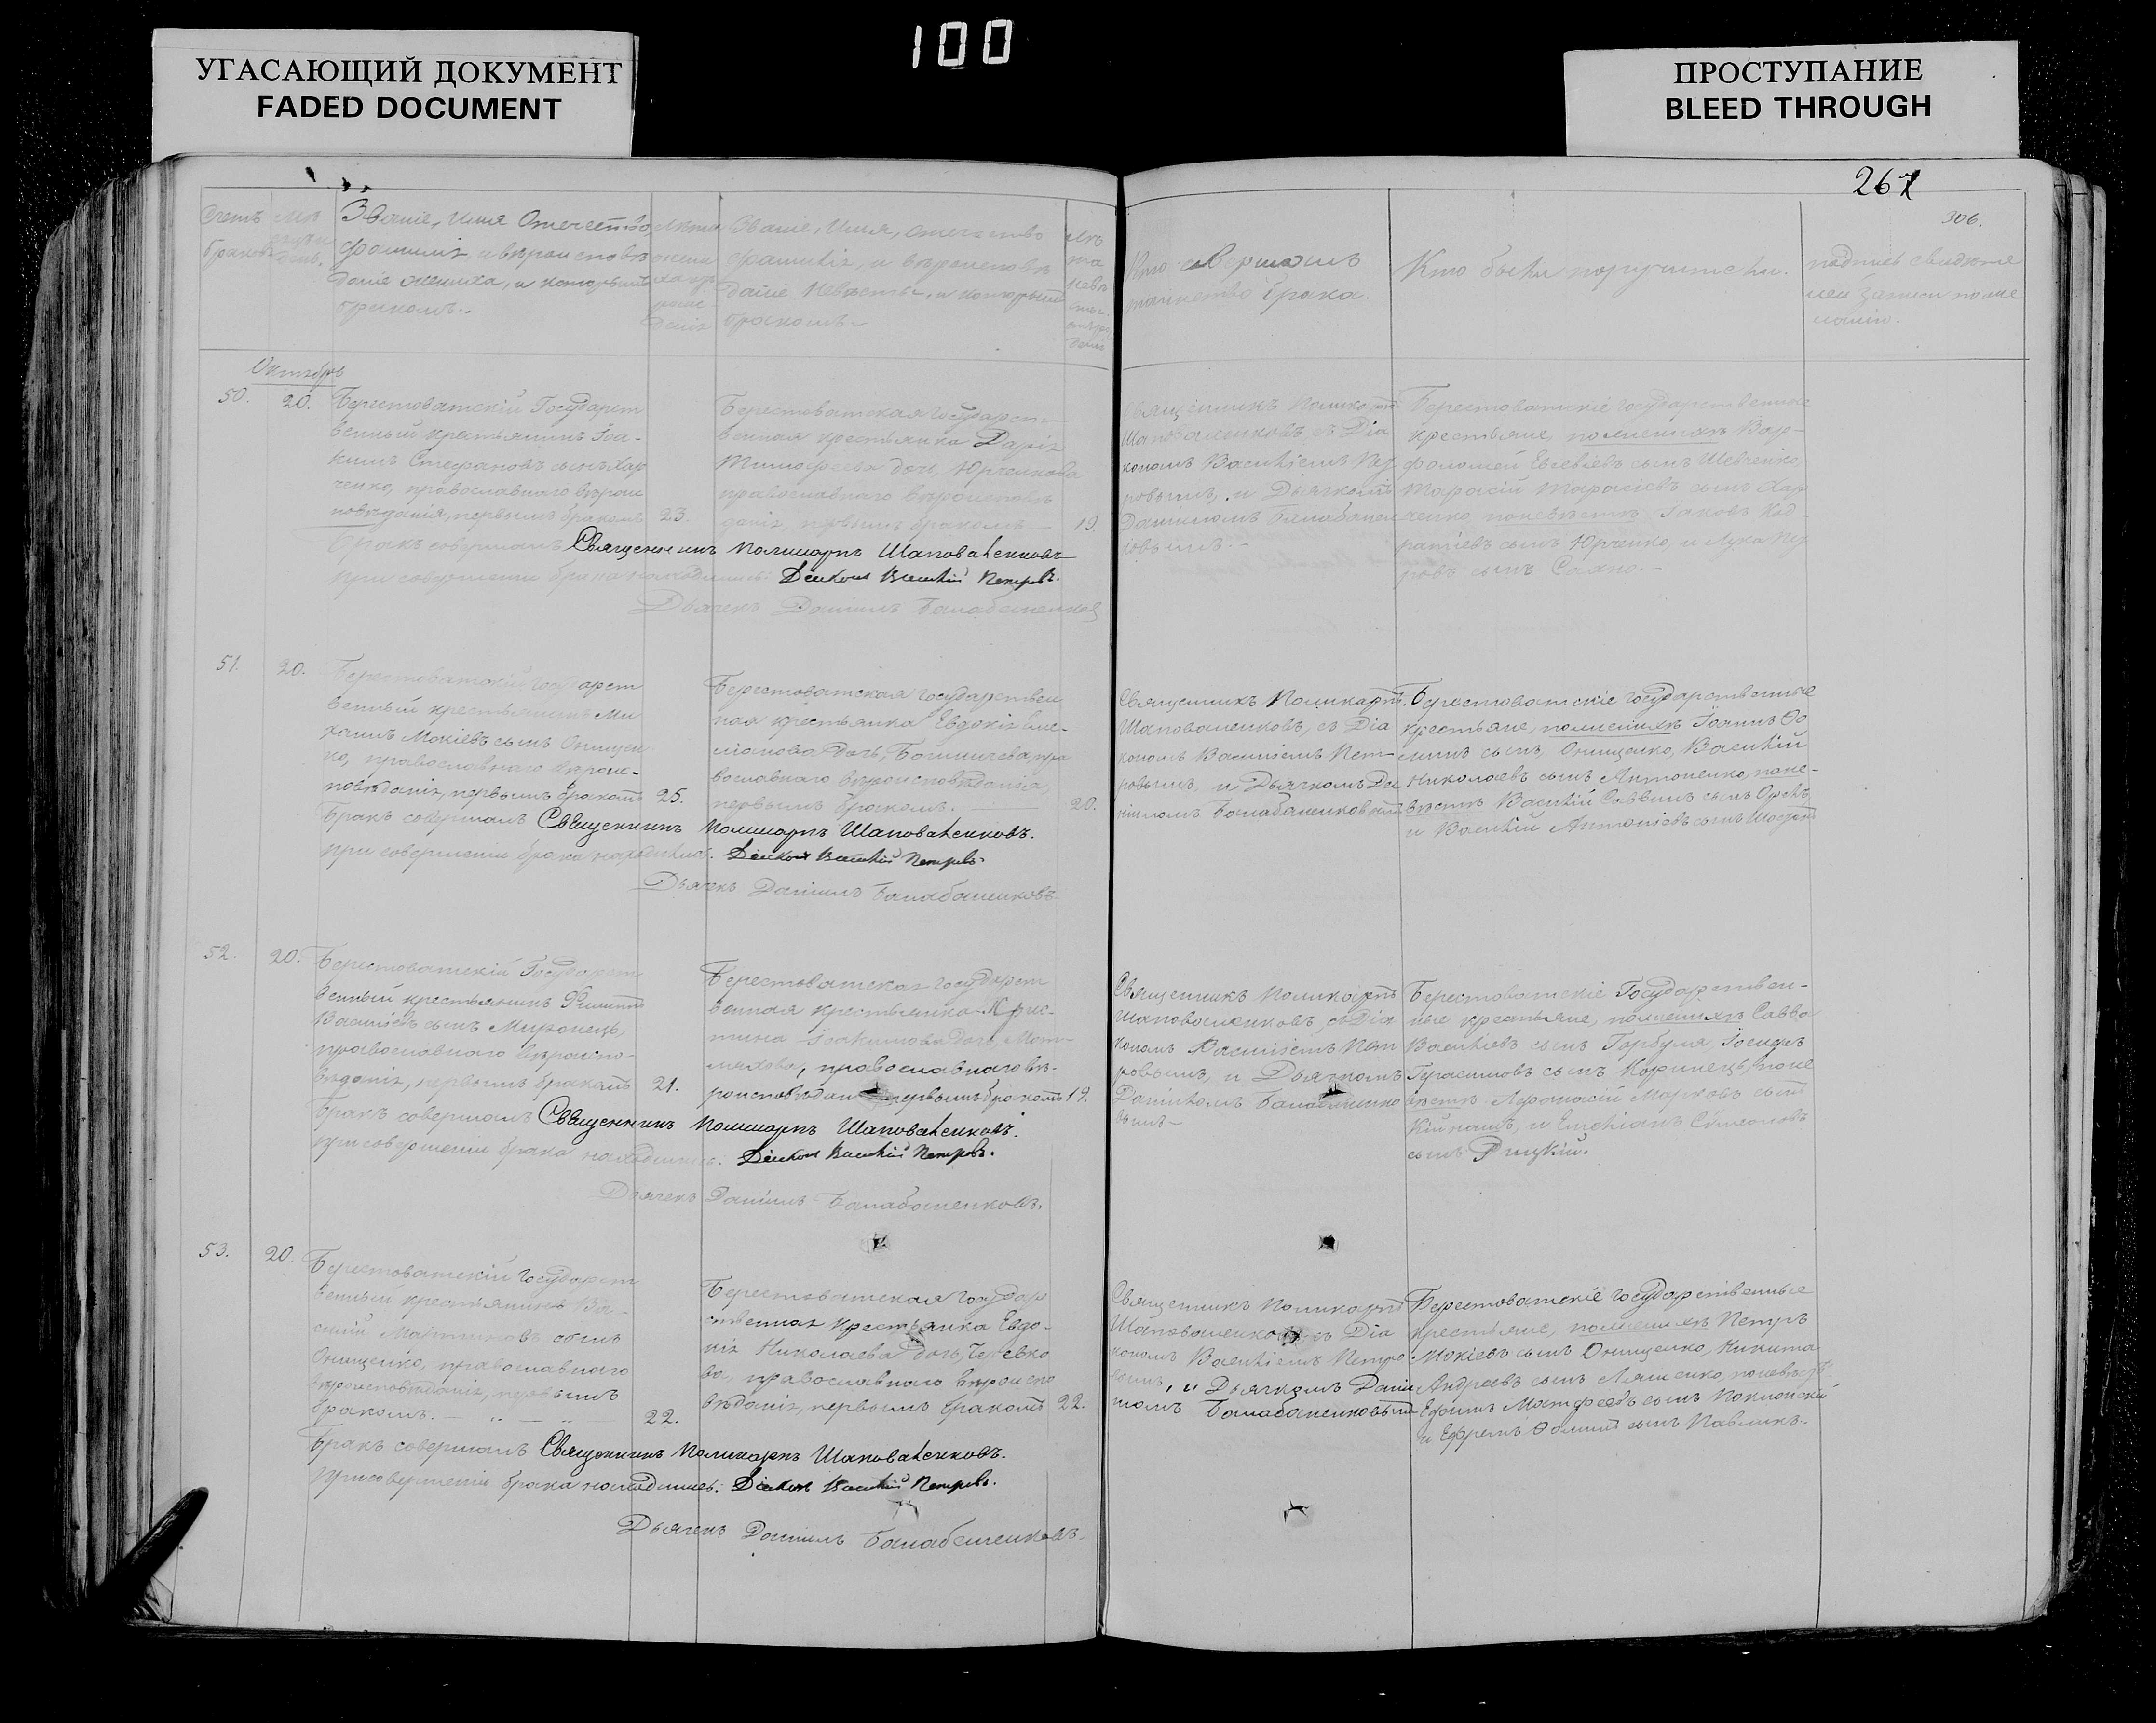 100
УГАСАЮЩИЙ ДОКУМЕНТ
FADED DOCUMENT
ПРОСТУПАНИЕ
BLEED THROUGH
267
306.
Счетъ браковъ
Званіе, Имя Отчество,
фамилія, и вѣроисповѣ
даніе жениха, и которымъ
бракомъ.
Званіе, Имя, отчество
фамилія, и вѣроисповѣ
даніе Невѣсты, и которымъ
бракомъ
Кто совершалъ
таинство брака.
Кто были поручители.
подпись свидѣте
лей записи по же
ланію.
Октябрь
50.
20.
Берестоватскій Государст
венный крестьянинъ Іоа-
кимъ Стефановъ сынъ Хар
ченко, православнаго вѣрои
повѣданія, первымъ бракомъ
23.
Берестоватская государст-
венная крестьянка Дарія
Тимофеева дочь, Юрченкова
православнаго вѣроисповѣ
данія, первымъ бракомъ
19
Священникъ Поликарпъ
Шаповаленковъ, съ Діа
кономъ Василіемъ Пет
ровымъ, и Дьячкомъ
Даніиломъ Балабанен
ковымъ.-
Берестоватскіе государственные
крестьяне, по женихѣ Вар-
фоломей Евсевіевъ сынъ Шевченко,
Тарасій Тарасіевъ сынъ Хар
ченко, по невѣстѣ Іаковъ Код-
ратіевъ сынъ Юрченко, и Лука Пет
ровъ сынъ Сахно.-
Бракъ совершалъ Священникъ Поликарпъ Шаповаленковъ
при совершеніи брака находились: Діаконъ Василій Петровъ.
Дьячекъ Даніилъ Балабаненковъ
51.
20.
Берестоватскій государст
венный крестьянинъ Ми
хаилъ Мокіевъ сынъ Онищен
ко, православнаго вѣроис-
повѣданія, первымъ бракомъ
25.
Берестоватская государствен
ная крестьянка Евдокія Еме-
ліанова дочь, пра
вославнаго вѣроисповѣданія,
первымъ бракомъ.
20.
Священникъ Поликарпъ
Шаповаленковъ, съ Діа
кономъ Василіемъ Пет-
ровымъ, и Дьячкомъ Да
ніиломъ Балабаненковымъ
Берестоватскіе государственные
крестьяне, по женихѣ Іоаннъ Ѳо
минъ сынъ Онищенко, Василій
Николаевъ сынъ Антоненко, по не-
вѣстѣ Василій Саввинъ сынъ
и Василій Антоніевъ сынъ
Бракъ совершалъ Священникъ Поликарпъ Шаповаленковъ.
при совершеніи брака находились. Діаконъ Василій Петровъ
Дьячекъ Даніилъ Балабаненковъ.
52.
20.
Берестоватскій Государст
венный крестьянинъ Филиппъ
Василіевъ сынъ Миронецъ,
православнаго вѣроиспо-
вѣданія, первымъ бракомъ
21.
Берестоватская государст
венная крестьянка Хрис-
тина Іоакимова дочь,
православнаго вѣ-
роисповѣдан первымъ бракомъ
19.
Священникъ Поликарпъ
Шаповаленковъ, съ Діа
кономъ Василіемъ Пет
ровымъ, и Дьячкомъ
Даніиломъ Балабаненко
вымъ-
Берестоватскіе Государствен-
ные крестьяне, по женихѣ Савва
Василіевъ сынъ Горбуля, Іосифъ
Герасимовъ сынъ Коринецъ, по не
вѣстѣ Аѳанасій Марковъ сынъ
и Емеліанъ Симеоновъ
сынъ Рицкій.
Бракъ совершалъ Священникъ Поликарпъ Шаповаленковъ.
при совершеніи брака находились: Діаконъ Василій Петровъ.
Дьячекъ Даніилъ Балабаненковъ.
53.
20.
Берестоватскій государст
венный крестьянинъ Ва-
силій Мартиновъ сынъ
Онищенко, православнаго
вѣроисповѣданія, первымъ
бракомъ.
22.
Берестоватская государ
ственная крестьянка Евдо-
кія Николаева дочь, Черевко
ва, православнаго вѣроиспо
вѣданія, первымъ бракомъ
22.
Священникъ Поликарпъ
Шаповаленковъ съ Діа
кономъ Василіемъ Петро
вымъ, и Дьячкомъ Даніи
ломъ Балабаненковымъ
Берестоватскіе государственные
крестьяне, по женихѣ Петръ
Мокіевъ сынъ Онищенко, Никита
Андреевъ сынъ Ляшенко, по невѣстѣ
Ефимъ Матфеевъ сынъ
и Ефремъ Ѳоминъ сынъ Павликъ.
Бракъ совершалъ Священникъ Поликарпъ Шаповаленковъ.
При совершеніи брака находились: Діаконъ Василій Петровъ.
Дьячекъ Даніилъ Балабаненковъ.